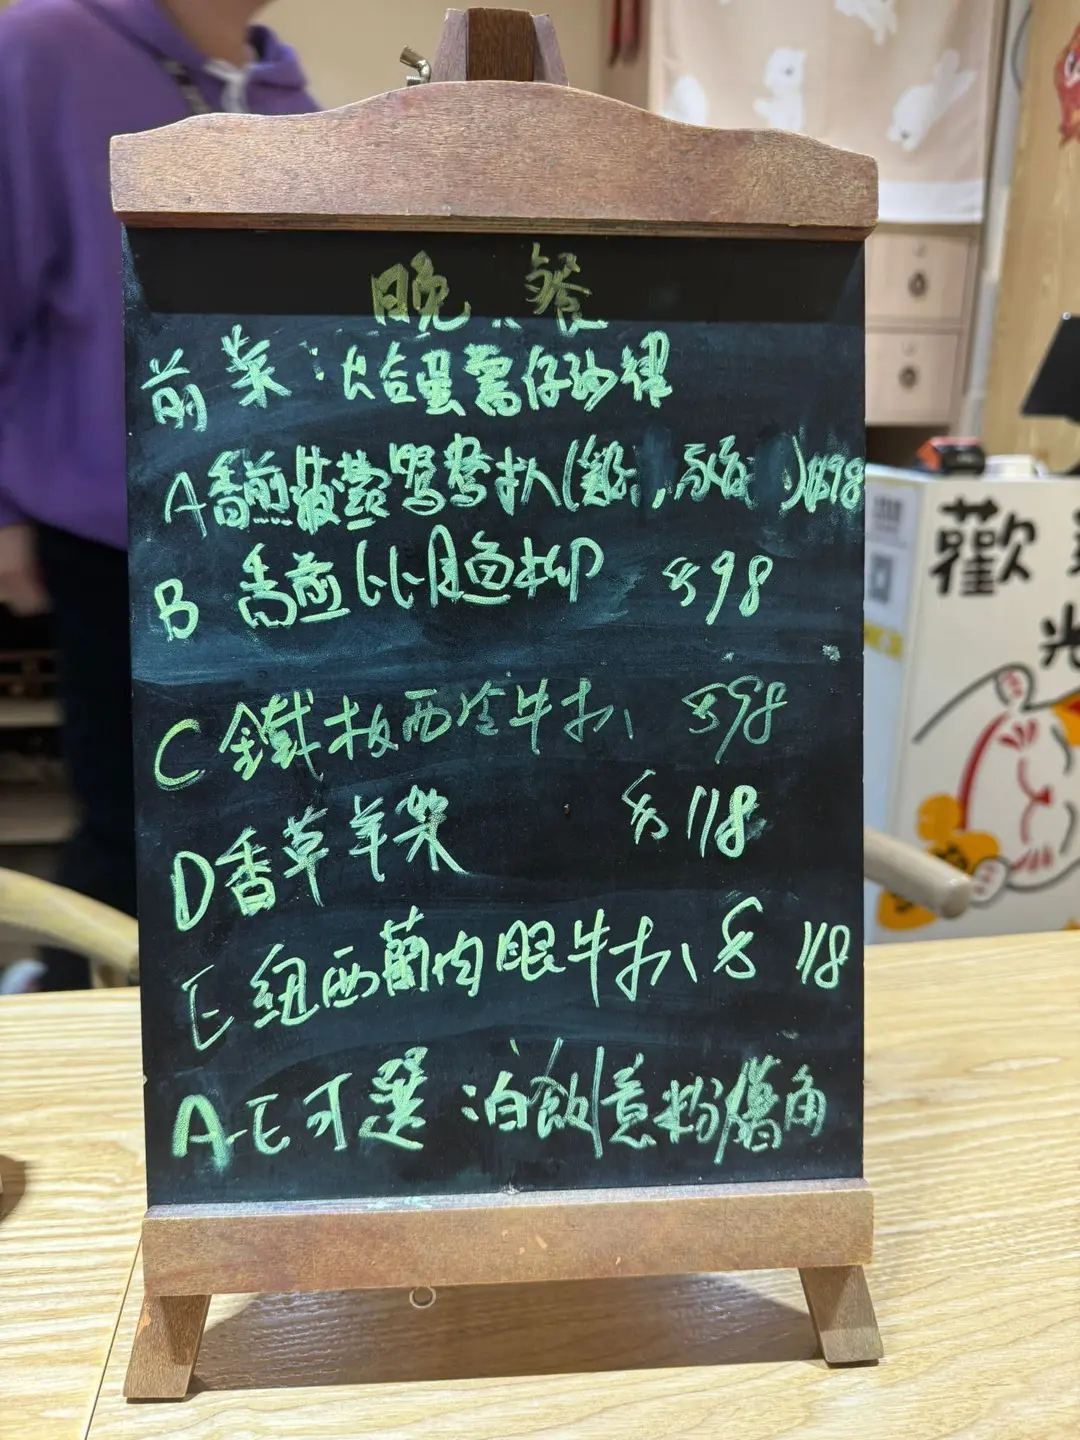 晚餐
前菜：火腿蛋薯仔沙律
A 香煎菠蘿鴛鴦扒(雞, ) $98
B 香煎比目魚柳 $98
C 鐵板西冷牛扒 $98
D 香草羊架 $118
E 紐西蘭肉眼牛扒 $118
A-E可選：白飯/意粉/薯角
歡
光